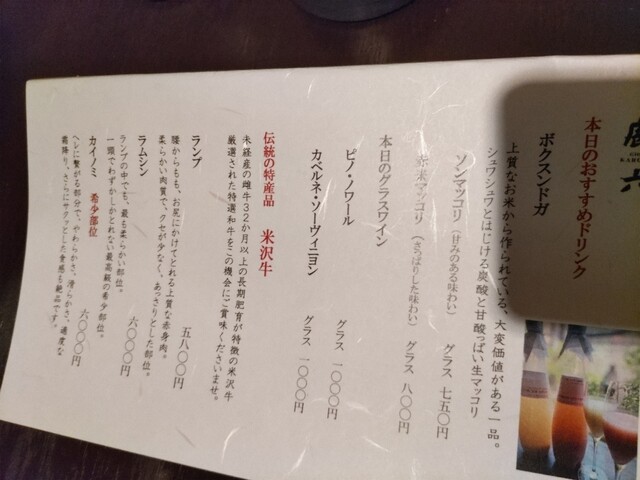 本日のおすすめドリンク
ボクスンドガ
上質なお米から作られている、大変価値がある一品。
シュワシュワとはじける炭酸と甘酸っぱい生マッコリ
ソンマッコリ（甘みのある味わい） グラス 七五〇円
赤米マッコリ（さっぱりした味わい） グラス 八〇〇円
本日のグラスワイン
ピノ・ノワール グラス 一〇〇〇円
カベルネ・ソーヴィニヨン グラス 一〇〇〇円
伝統の特産品 米沢牛
未経産の雌牛32か月以上の長期肥育が特徴の米沢牛
厳選された特選和牛をこの機会にご賞味くださいませ。
ランプ 五八〇〇円
腰からもも、お尻にかけてとれる上質な赤身肉。
柔らかい肉質で、クセが少なく、あっさりとした部位。
ラムシン 六〇〇〇円
ランプの中でも、最も柔らかい部位。
一頭でわずかしかとれない最高級の希少部位。
カイノミ 希少部位 六〇〇〇円
ヘレに繋がる部分で、やわらかさ、滑らかさ、適度な
霜降り、さらにサクッとした食感も絶品です。